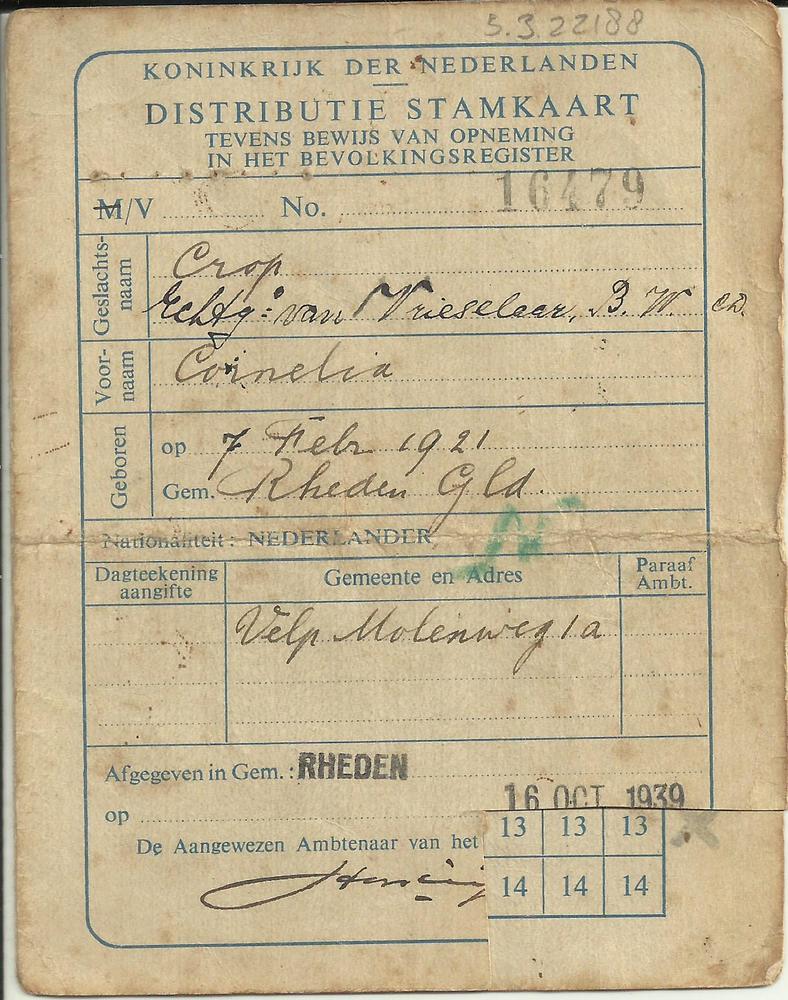 5.3.22188
KONINKRIJK DER NEDERLANDEN
DISTRIBUTIE STAMKAART
TEVENS BEWIJS VAN OPNEMING
IN HET BEVOLKINGSREGISTER
M/V No. 16479
Geslachts-
naam
Crop
Echtg: van Vrieselaar, B. W.
Voor-
naam
Cornelia
Geboren
op 7 Febr 1921
Gem. Rheden Gld.
Nationaliteit: NEDERLANDER
Dagteekening
aangifte
Gemeente en Adres
Paraaf
Ambt.
Velp Molenweg 1a
Afgegeven in Gem.: RHEDEN
op 16 OCT 1939
De Aangewezen Ambtenaar van het
13 13 13
14 14 14